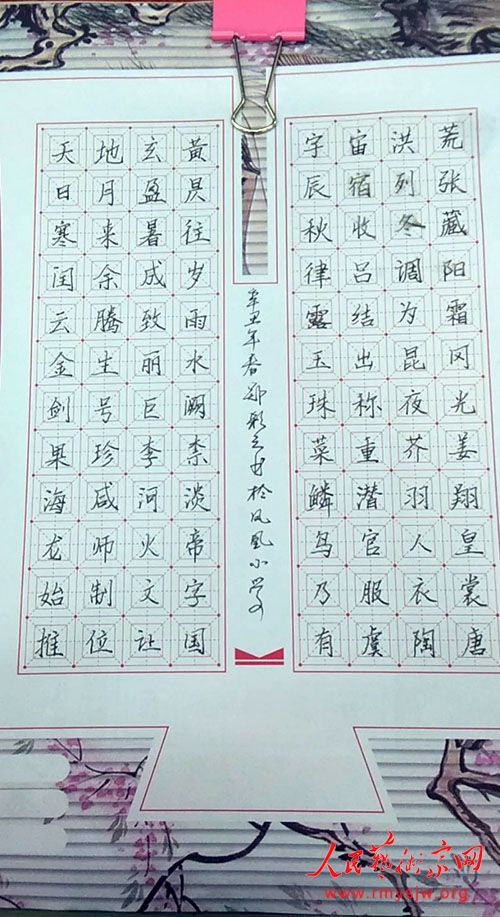 天地玄黄 宇宙洪荒
日月盈昃 辰宿列张
寒来暑往 秋收冬藏
闰余成岁 律吕调阳
云腾致雨 露结为霜
金生丽水 玉出昆冈
剑号巨阙 珠称夜光
果珍李柰 菜重芥姜
海咸河淡 鳞潜羽翔
龙师火帝 鸟官人皇
始制文字 乃服衣裳
推位让国 有虞陶唐
辛丑年春 书於凤凰小学
人民藝術家网
www.rmysjw.org